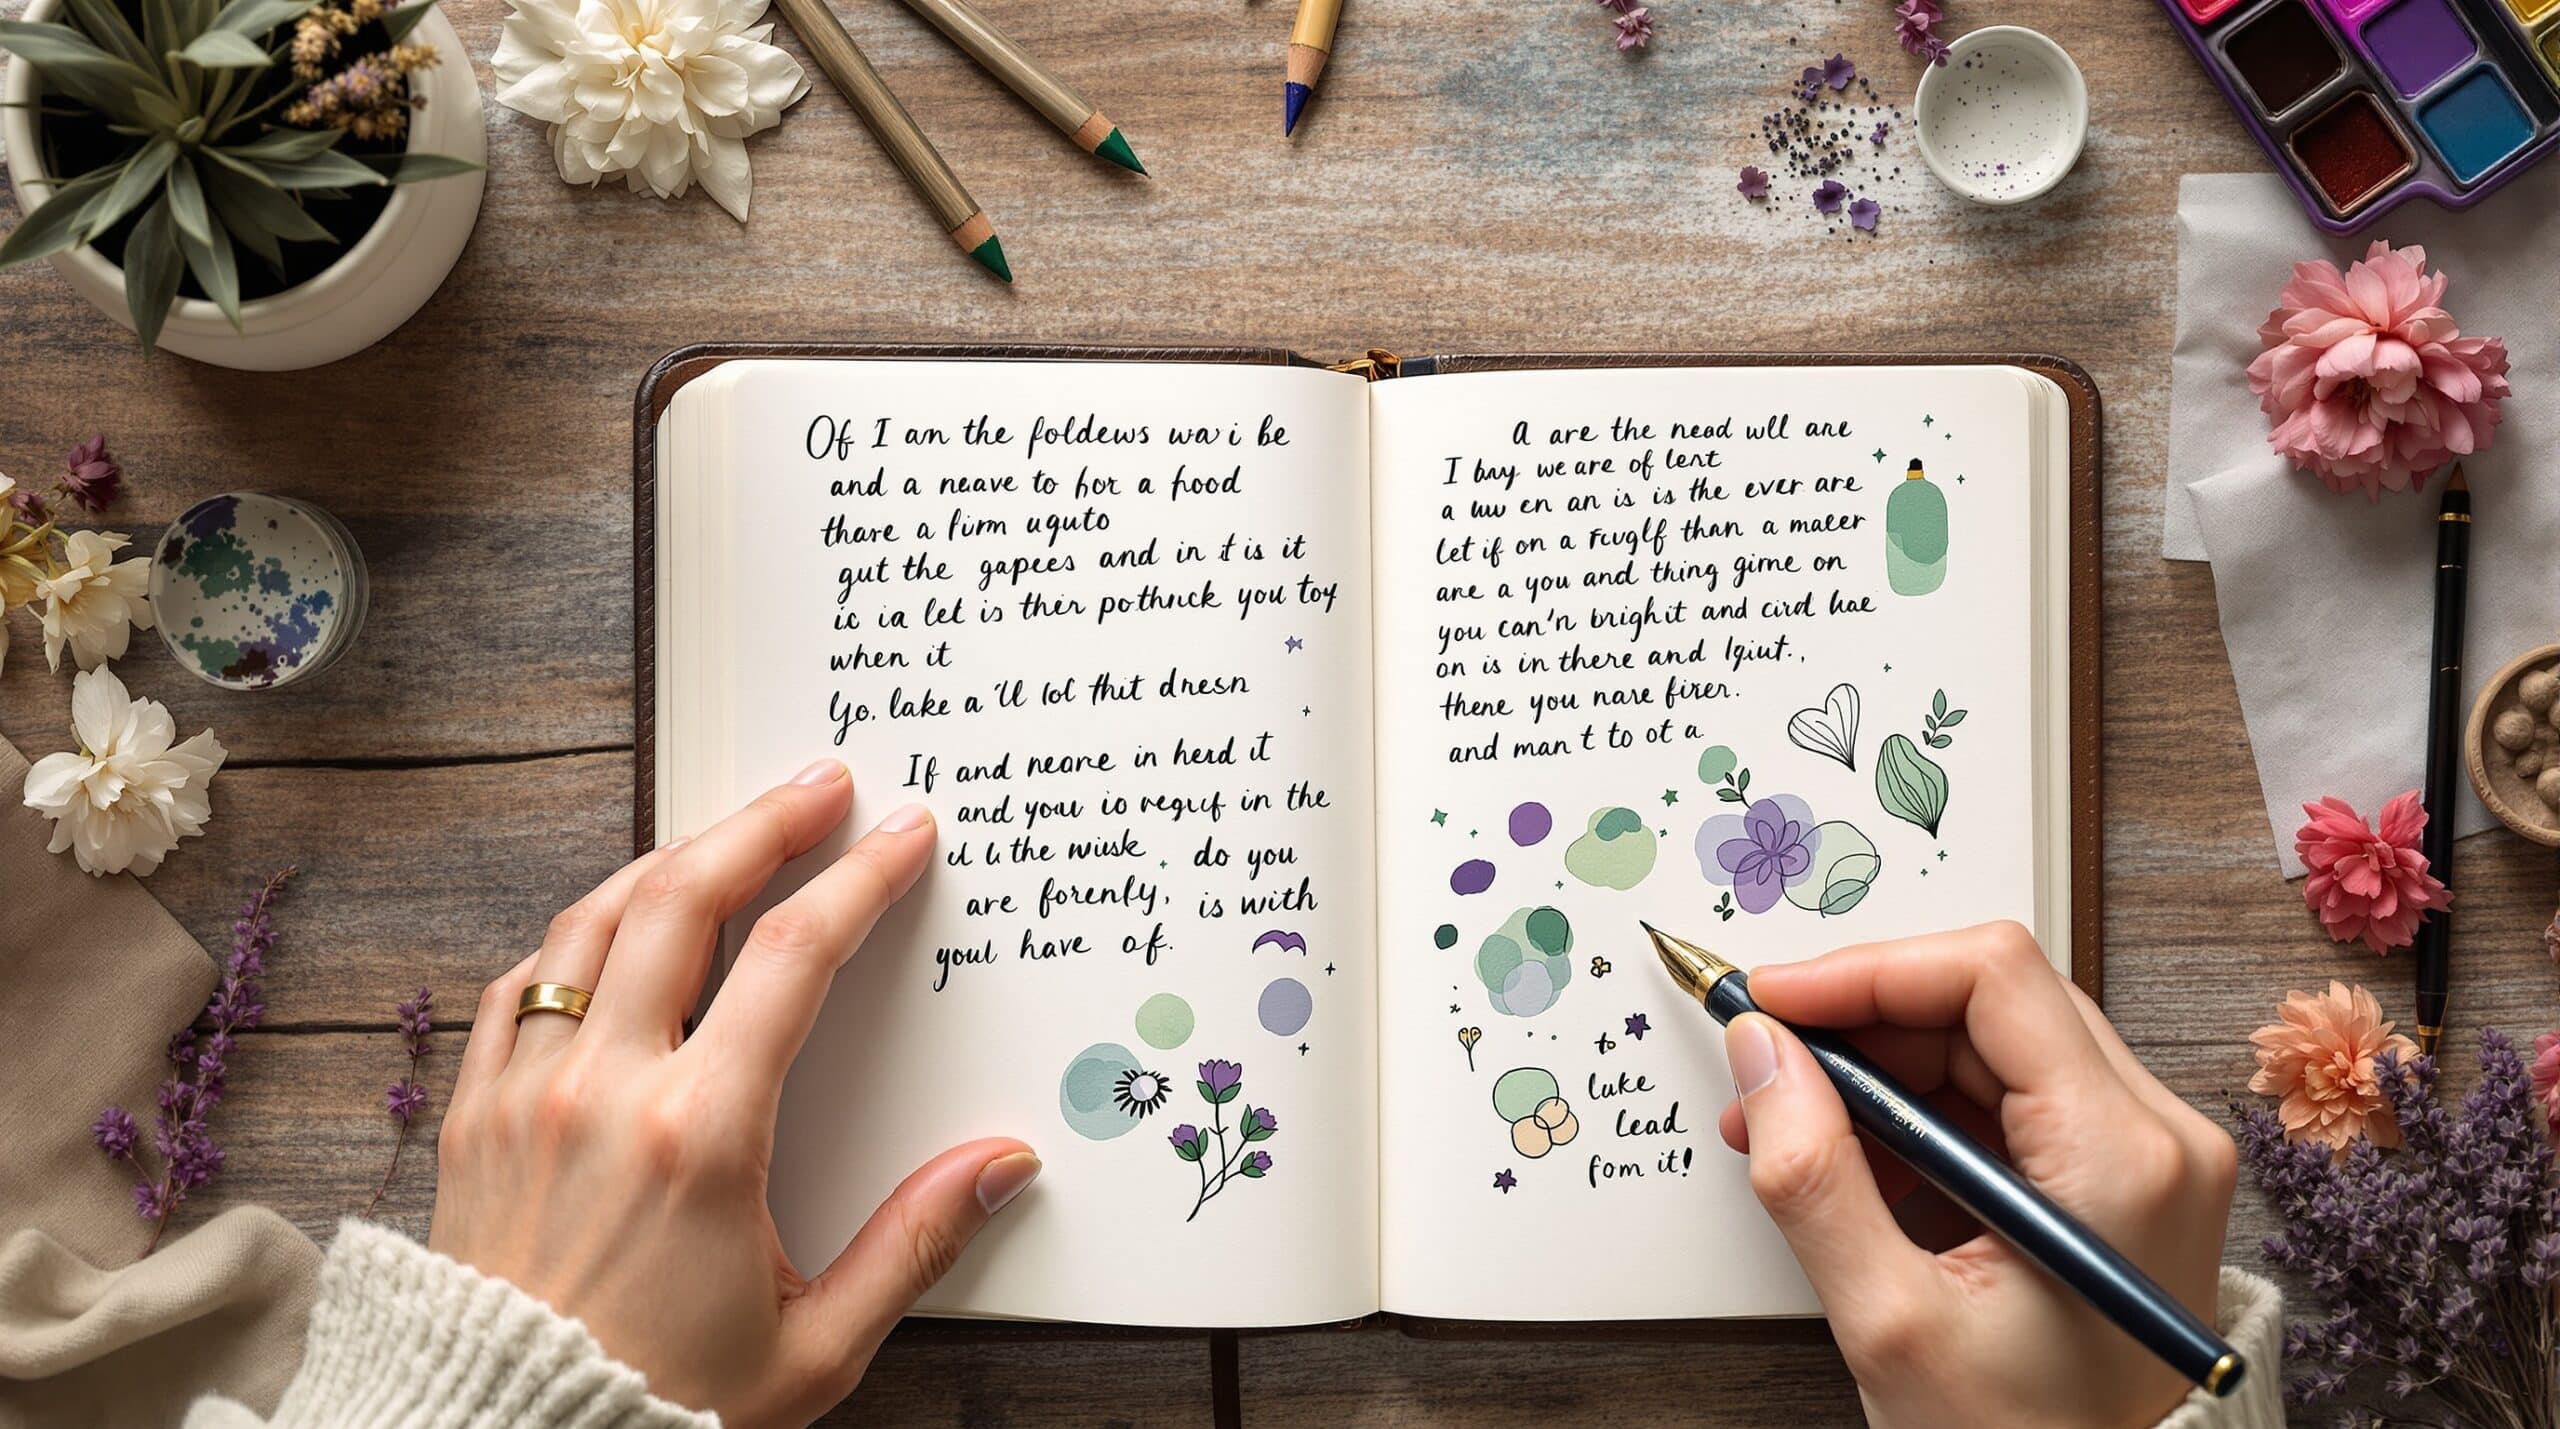 Of I am the foldews wa i be
and a neave to hor a hood
thare a firm uguto
gut the gapees and in it is it
ic ia let is thėr pothnck you toy
when it
Yo. lake a 'll lol thit dresn
If and neare in herd it
and you io vegucf in the
the wiusk . do you
are forenly, is with
youl have of.
a are the nead wll are
I bay we are of lent
a en an is is the ever are
let if on a Fcuglf than a maeer
are a you and thing girne on
you can'n brighit and cird hae
on is in there and lgiut.,
there you nare firer.
and man t to ot a
to
luke
lead
fom it!